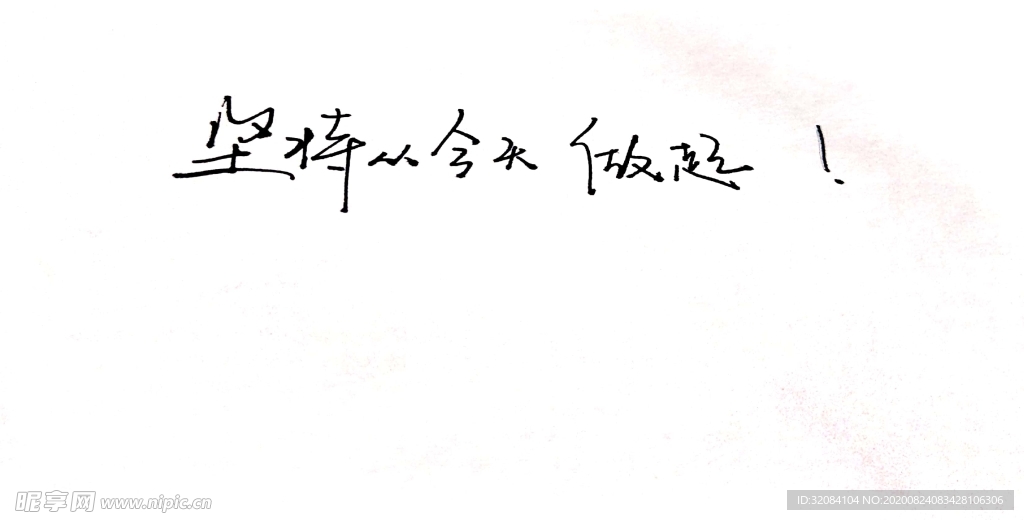 坚持从今天做起!
昵享网 www.nipic.cn
ID:32084104 NO:20200824083428106306